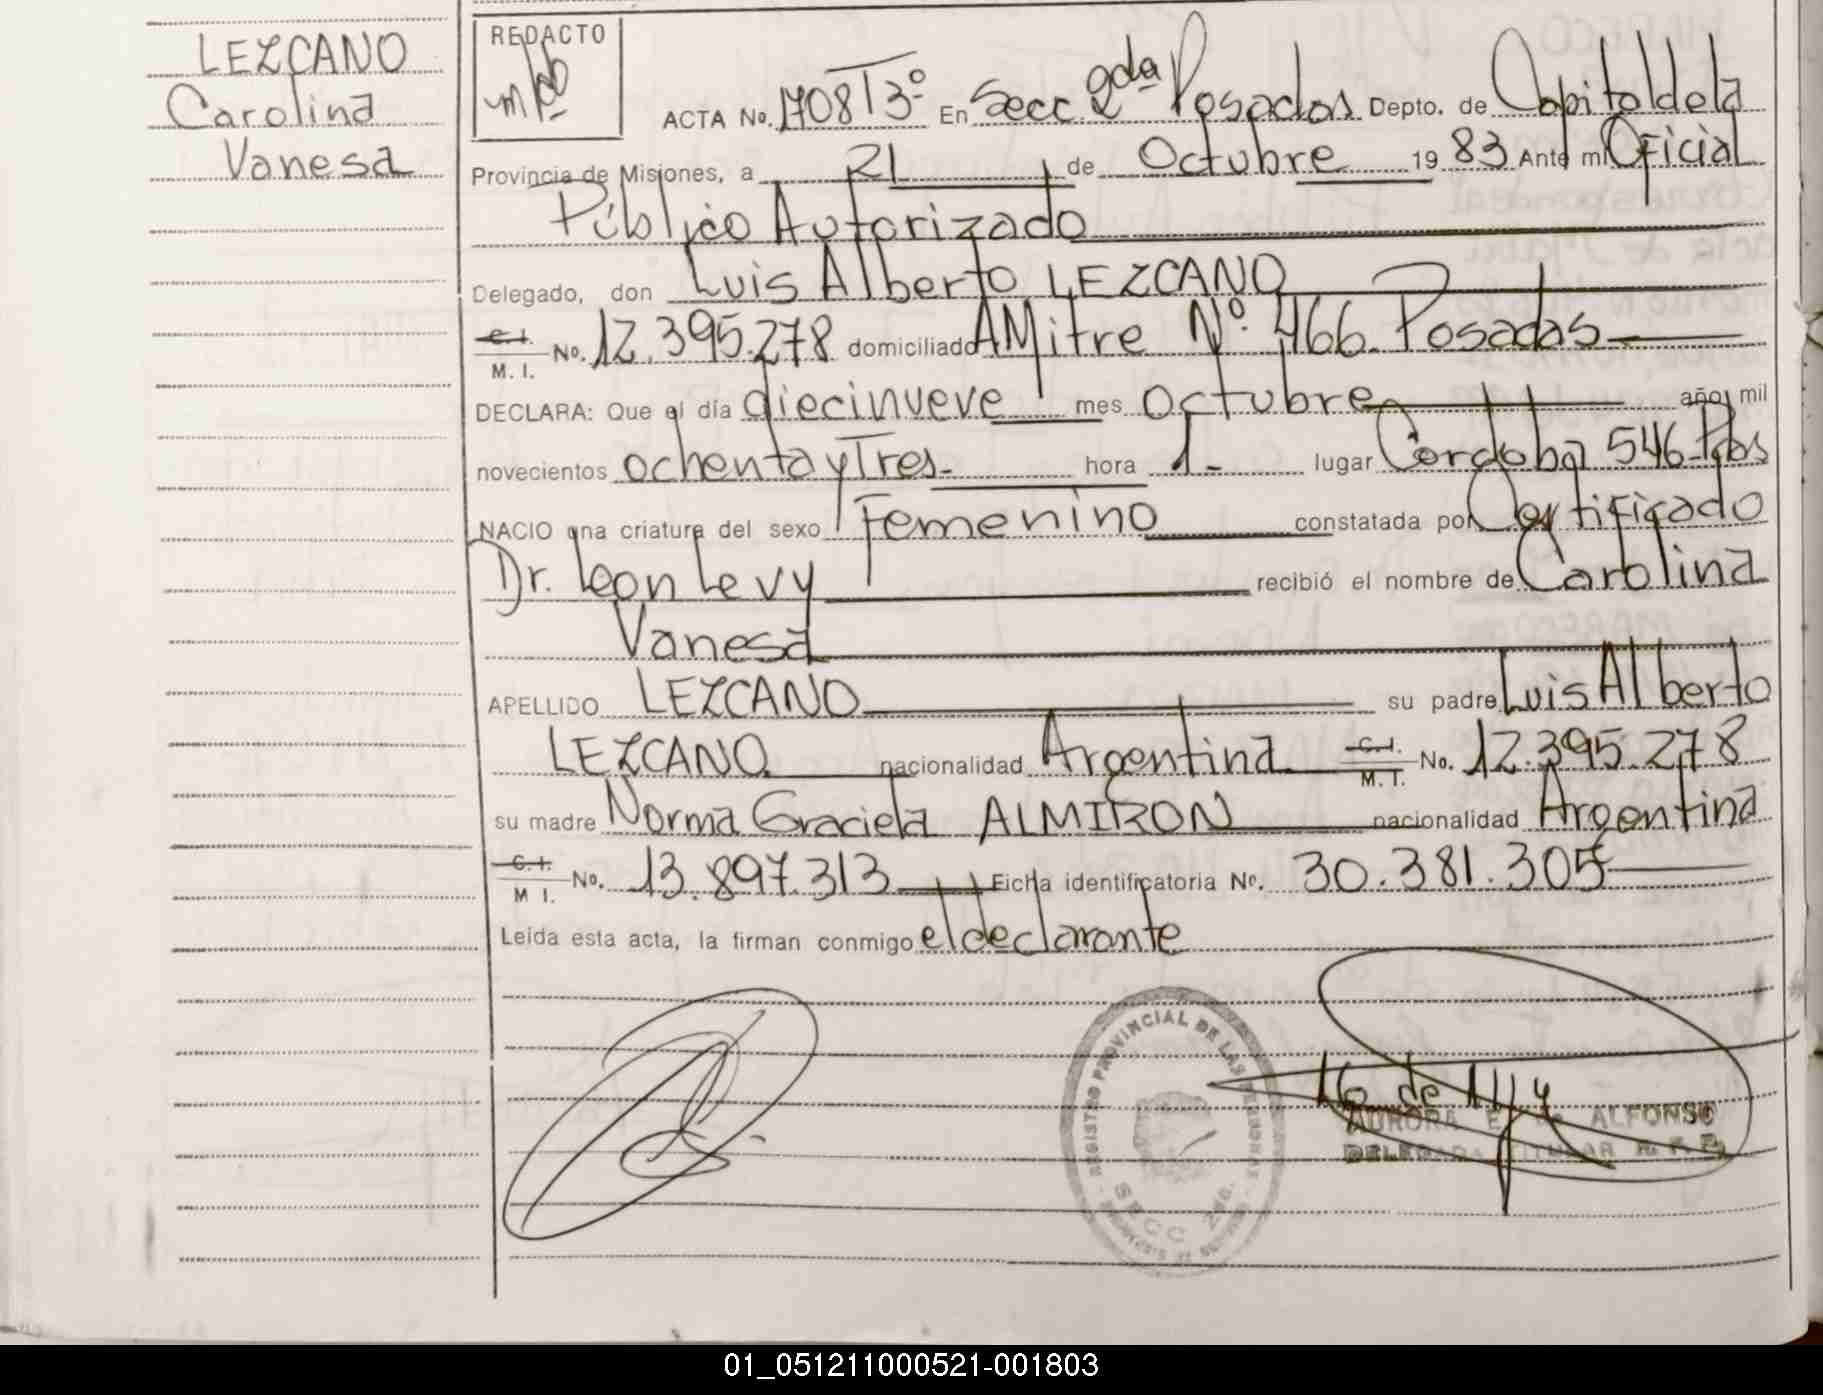 LEZCANO
Carolina
Vanesa
REDACTO
ACTA No. 1708 T 3º En Secc. 2da Posadas Depto. de Capital de la
Provincia de Misiones, a 21 de Octubre 19 83 Ante mi Oficial
Público Autorizado
Delegado, don Luis Alberto LEZCANO
C.I. M. I. No. 12.395.278 domiciliado A Mitre Nº. 466 Posadas
DECLARA: Que el día diecinueve mes octubre año mil
novecientos ochenta y Tres hora 1 - lugar Cordoba 546 Pdas
NACIO una criatura del sexo Femenino constatada por Certificado
Dr. Leon Levy recibió el nombre de Carolina
Vanesa
APELLIDO LEZCANO su padre Luis Alberto
LEZCANO nacionalidad Argentina C.I. M.I. No. 12.395.278
su madre Norma Graciela ALMIRON nacionalidad Argentina
C.I. M I. No. 13.897.313 Ficha identificatoria Nº. 30.381.305
Leída esta acta, la firman conmigo el declarante
REGISTRO PROVINCIAL DE LAS PERSONAS
SECC 2da.
AURORA E. de ALFONSO
DELEGADA TITULAR R. P. P.
01_051211000521-001803